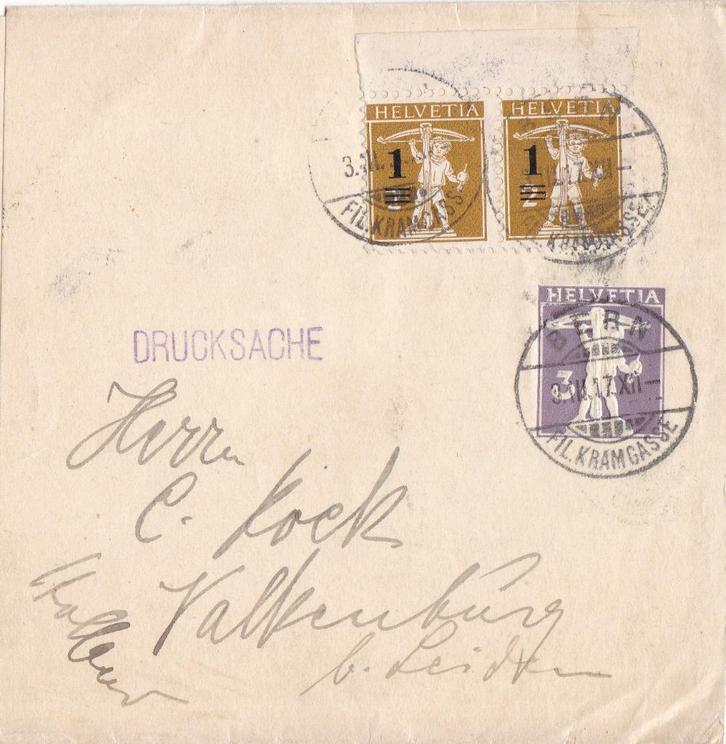 HELVETIA HELVETIA
1 1
2
3.III.
FIL.KRAMGASSE
17.XII-
KRAMGASSE
HELVETIA
3
BERN
3.III.17.XII-
FIL.KRAMGASSE
DRUCKSACHE
Herrn
C. Kock
Valkenburg
b. Leiden
Holland